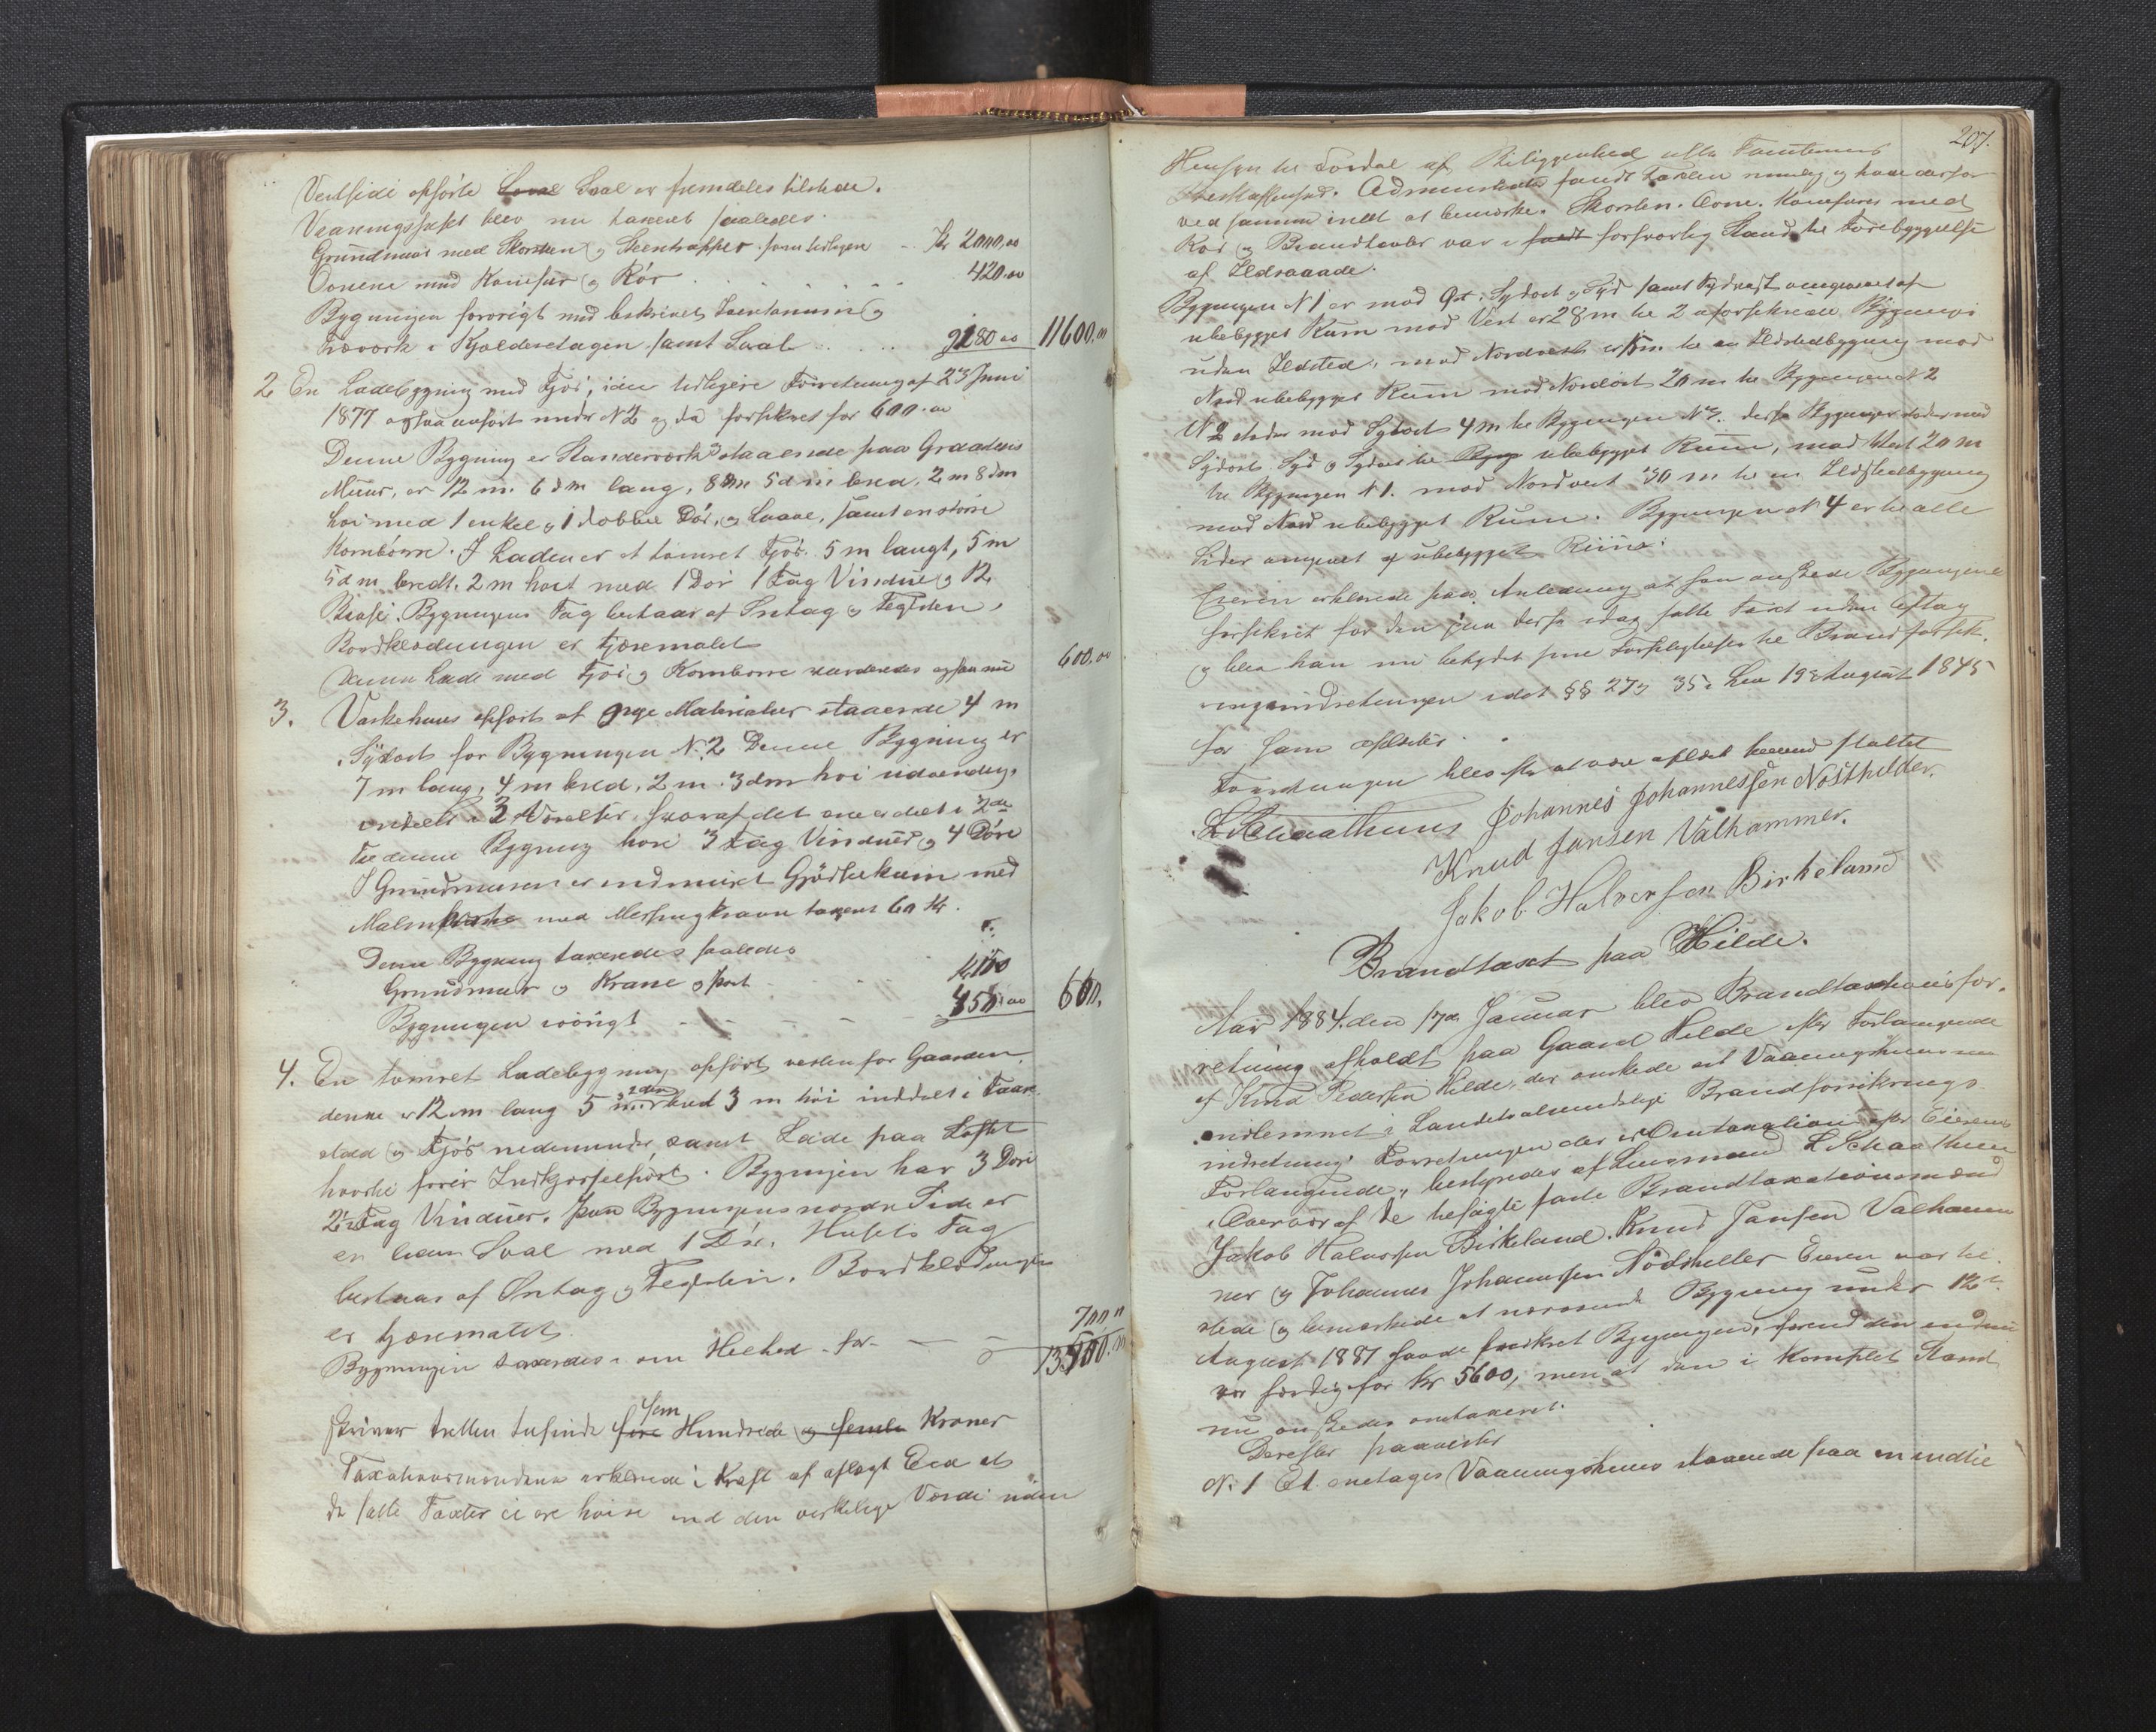 Vestside opførte Sval er fremdeles tilstede.
Vaaningshuset blev nu taxeret saaledes.
Grundmuur med Skorsten og Steentrapper som tidligere Kr 2000,00
Ovnene med Komfur og Rør 420.00
Bygningen forøvrigt med beskrivet Inventarium og
Træværk i Kjælderetagen samt Sval 9180 00 11600,00
2 En Ladebygning med Fjøs, i den tidligere Forretning af 23 Juni
1877 ogsaa anført under N 2 og da forsikret for 600.00
Denne Bygning er Standerværk staaende paa Graasteens
Muur, er 12 m. 6 dm lang, 8 m 5 dm bred, 2 m 8 dm
høi med 1 enkel og 1 dobbel Dør, og Laave, samt en større
Kornbørre. I Laden er et tømret Fjøs. 5 m langt, 5 m
5 dm bredt. 2 m høit med 1 Dør 1 Fag Vindue og 12
Baase. Bygningens Tag bestaar af Ontag og Teglsten,
Bordklædningen er tjæremalet
Denne Lade med Fjøs og Kornborre vurderedes ogsaa nu 600.00
3. Vaskehuus opført af nye Materialier staaende 4 m
Sydost for Bygningen N. 2 Denne Bygning er
7 m lang, 4 m bred, 2 m. 3 dm høi udvendig,
inddelt i 2 Værelser, hvoraf det ene er delt i 2de
I denne Bygning hore 3 Fag Vinduer og 4 Døre
I Grundmuren er indmuret Gjødselkum med
Malm med Messingkrane taxeret 60 Kr.
Denne Bygning taxeredes saaledes
Grundmuur og Krane og Port 150
Bygningen iøvrigt 450.00 600.
4. En tømret Ladebygning opført vestenfor Gaarden,
denne er 12 m lang 5 m 2 dm bred 3 m høi inddelt i Faare
stald og Fjøs nedenunder samt Lade paa Loftet
hvortil fører Indkjørselsport. Bygningen har 3 Døre
2 Fag Vinduer. Paa Bygningens nordre Side er
en liden Sval med 1 Dør. Husets Tag
bestaar af Ontag og Teglsten. Bordklædningen
er tjæremalet.
Bygningen taxeredes i om Helhed for 700 "
13500.00
skriver tretten tusinde fire fem Hundrede og femti Kroner
Taxationsmændene erklærede i Kraft af aflagt Eed at
de satte Taxter ei ere høiere end den virkelige Værdi uden
207.
Hensyn til Fordel af Beliggenhed eller Tomtens
Beskaffenhed. Administrator fandt Taxten rimelig og havde derfor
ved samme intet at bemærke. Skorsten. Ovne. Komfuren med
Rør og Brandtavler var i forsvarlig Stand til Forebyggelse
af Ildsvaade.
Bygningen N 1 er mod Øst, Sydost og Syd samt Sydvest omgivet af
ubebygget Rum mod Vest er 28 m til 2 uforsikrede Bygninger
uden Ildsted, mod Nordvest er 15 m. til en Ildstedbygning mod
Nord ubebygget Rum mod Nordost 20 m til Bygningen N 2
N 2 støder mod Sydost 4 m til Bygningen N 3. disse Bygninger støder mod
Sydost Syd og Sydvest til ubebygget Rum, mod Vest 20 m
til Bygningen N 1. mod Nordvest 30 m til en Ildstedbygning
mod Nord ubebygget Rum. Bygningen N 4 er til alle
Sider omgivet af ubebygget Rum.
Eieren erklærede paa Anledning at han ønskede Bygningene
forsikret for den paa disse idag satte Taxt uden Aftag
og blev han nu betydet sine Forpligtelser til Brandforsik.
ringsindretningen idet §§ 27 og 35 i Lov 19 August 1845
for ham oplæstes.
Forretningen blev efter at være oplæst herved sluttet
L Schaathuus Johannes Johannessen Nøsthelder.
Knud Jansen Valhammer.
Jakob Halvorsen Birkeland
Brandtaxt paa Hilde.
Aar 1884. den 17de Januar blev Brandtaxtionsfor.
retning afholdt paa Gaard Hilde efter Forlangende
af Knud Pedersen Hilde, der ønskede sit Vaaningshuus
indlemmet i Landets almindelige Brandforsikrings
indretning. Forretningen der er Omtaxation efter Eierens
Forlangende, bestyredes af Lensmand L Schaathuun
i Overvær af de befalte faste Brandtaxationsmænd
Jakob Halvorsen Birkeland. Knud Jansen Valham
mer og Johannes Johannessen Nødstheller Eieren var til
stede og bemærkede at nærværende Bygning under 12te
August 1881 havde forsikret Bygningen, førend den endnu
var færdig for Kr 5600, men at den i komplet Stand
nu ønskedes omtaxeret.
Derefter paavistes
N. 1 Et. enetages Vaaningshuus staaende paa en indtil